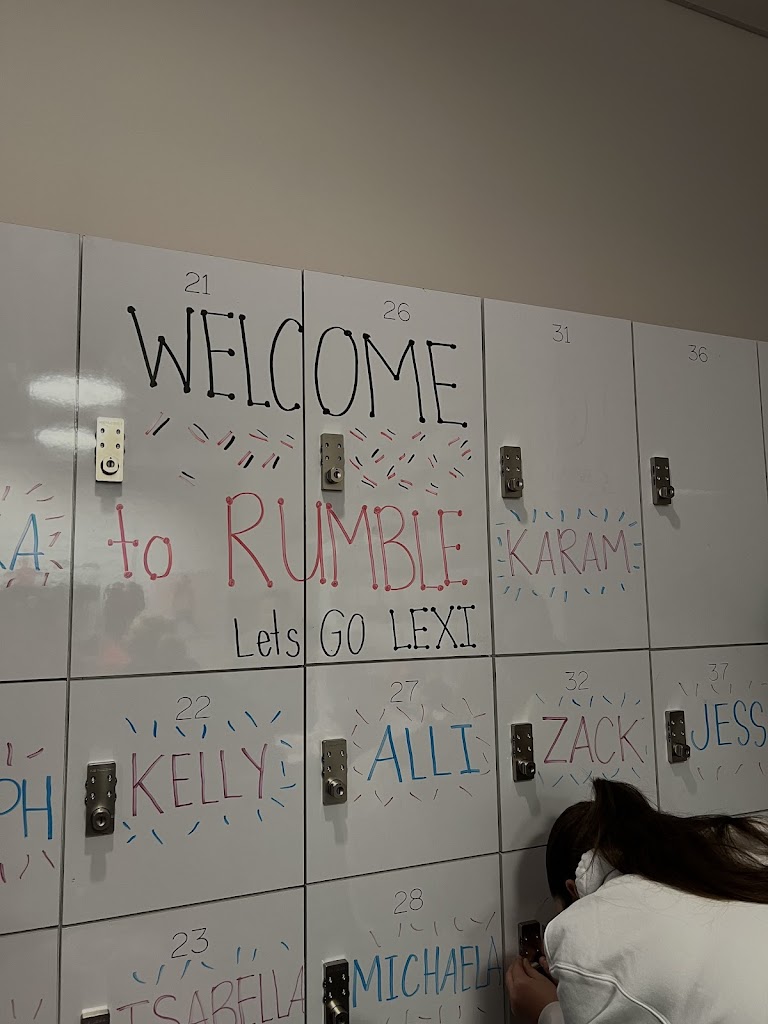 21
26
31
36
WELCOME
to RUMBLE
KARAM
Lets GO LEXI
22
27
32
37
KELLY
ALLI
ZACK
JESS
PH
23
28
ISABELLA
MICHAELA